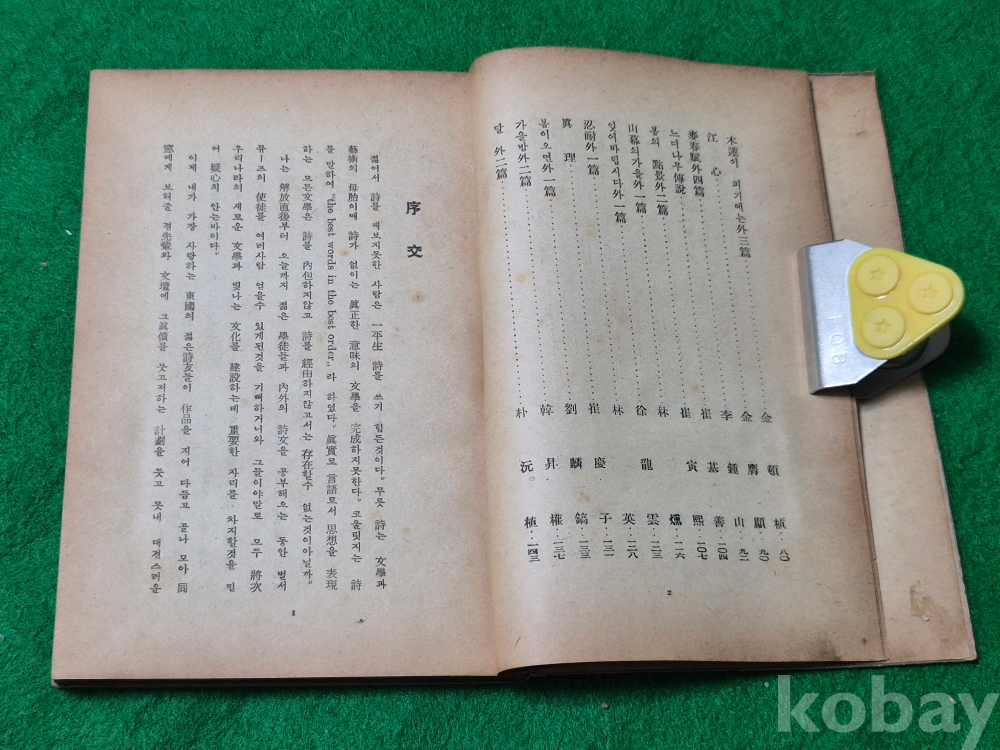 木蓮이 피기에는外三篇……金頓植·八〇
江心……金膺顯·九〇
麥春賦外四篇……李鍾山·九二
느티나무傳說……崔基善·一〇四
봄의 點景外二篇……崔寅熙·一〇七
山幕의가을外一篇……林燻·一一六
잊어바립시다外一篇……徐龍雲·一二三
忍耐外一篇……林英·一二八
眞理……崔慶子·一三一
봄이오면外一篇……劉麟鎬·一三三
가을밤外二篇……韓昇權·一三七
달 外二篇……朴沅植·一四三
2
序文
젊어서 詩를 써보지못한 사람은 一平生 詩를 쓰기 힘든것이다。무릇 詩는 文學과
藝術의 母胎이매 詩가 없이는 眞正한 意味의 文學을 完成하지못한다。코울릿지는 詩
를 말하여 "the best words in the best order„ 라 하였다。眞實로 言語로서 思想을 表現
하는 모든文學은 詩를 內包하지않고 詩를 經由하지않고서는 存在할수 없는것이아닐까。
나는 解放直後부터 오늘까지 젊은 學徒들과 內外의 詩文을 공부해오는 동안 벌서
뮤ー즈의 使徒를 여러사람 얻을수 있게된것을 기뻐하거니와 그들이야말로 모두 將次
우리나라의 새로운 文學과 빛나는 文化를 建設하는데 重要한 자리를 차지할것을 믿
어 疑心치 안는바이다。
이제 내가 가장 사랑하는 東國의 젊은詩友들이 作品을 지어 다듬고 골나 모아 同
窓에게 보혀줄 겸先輩와 文壇에 그眞價를 뭇고저하는 計劃을 뭇고 못내 대견스러운
1
kobay